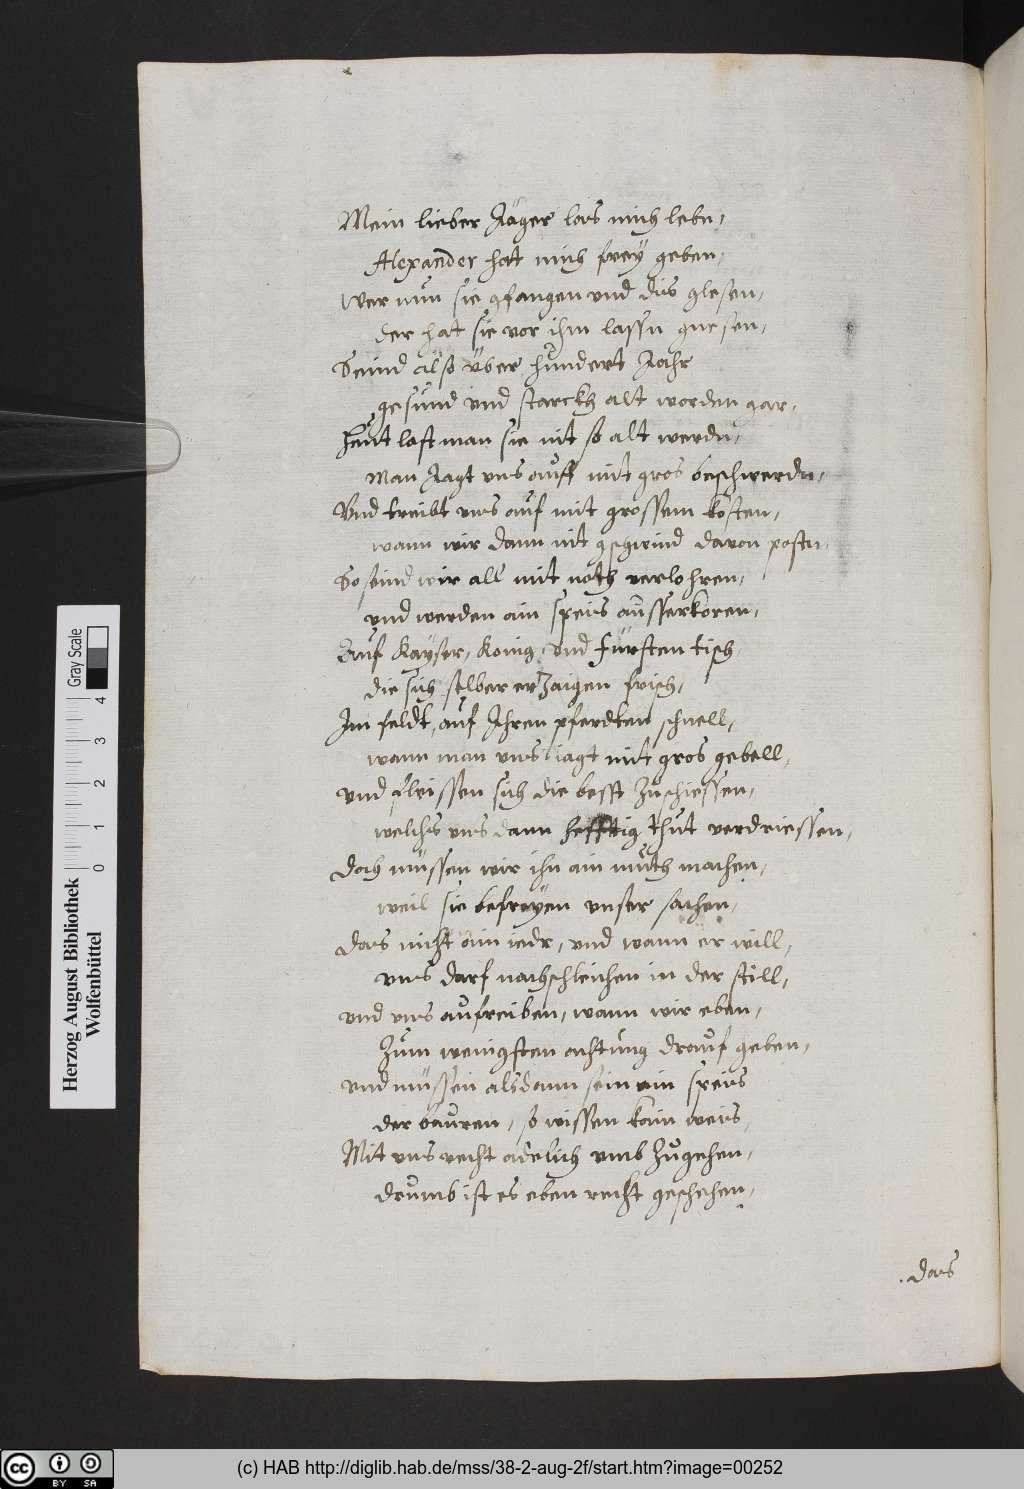 Mein lieber Jäger las mich lebn,
Alexander hat mich freÿ geben,
Wer nun sie gfangen und dis glesen,
der hat sie vor ihm lassn gnesen,
Seind also über hundert Jahr
gesund und starckh alt worden gar,
Heut last man sie nit so alt werdn,
Man Jagt uns auff mit gros beschwerdn,
Und treibt uns auf mit grossem kosten,
wann wir dann nit gschwind davon postn,
So seind wir all mit noth verlohren,
und werden ain speis ausserkoren,
Auf Kaÿser, König, und Fürsten tisch,
die sich selber erzaigen frisch,
Im feldt, auf Ihren pferdten schnell,
wann man uns jagt mit gros gebell,
und fleissen sich die besst zuschiessen,
welchs uns dann hefftig thut verdriessen,
Doch müssen wir ihn ain muth machen,
weil sie befreÿen unser sachen,
Das nicht ain iedr, und wann er will,
uns darf nachschleichen in der still,
und uns aufreiben, wann wir eben,
Zum wenigsten achtung drauf geben,
und müssen alsdann sein ein speis
der bauren, so wissen kain weis,
Mit uns recht adelich umb zugehen,
drumb ist es eben recht geschehen,
. Das
Herzog August Bibliothek
Wolfenbüttel
Gray Scale
0 1 2 3 4
cc BY SA
(c) HAB http://diglib.hab.de/mss/38-2-aug-2f/start.htm?image=00252